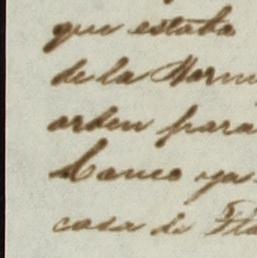 que estaba
de la Harm
orden para
banco ya
casa de Fla